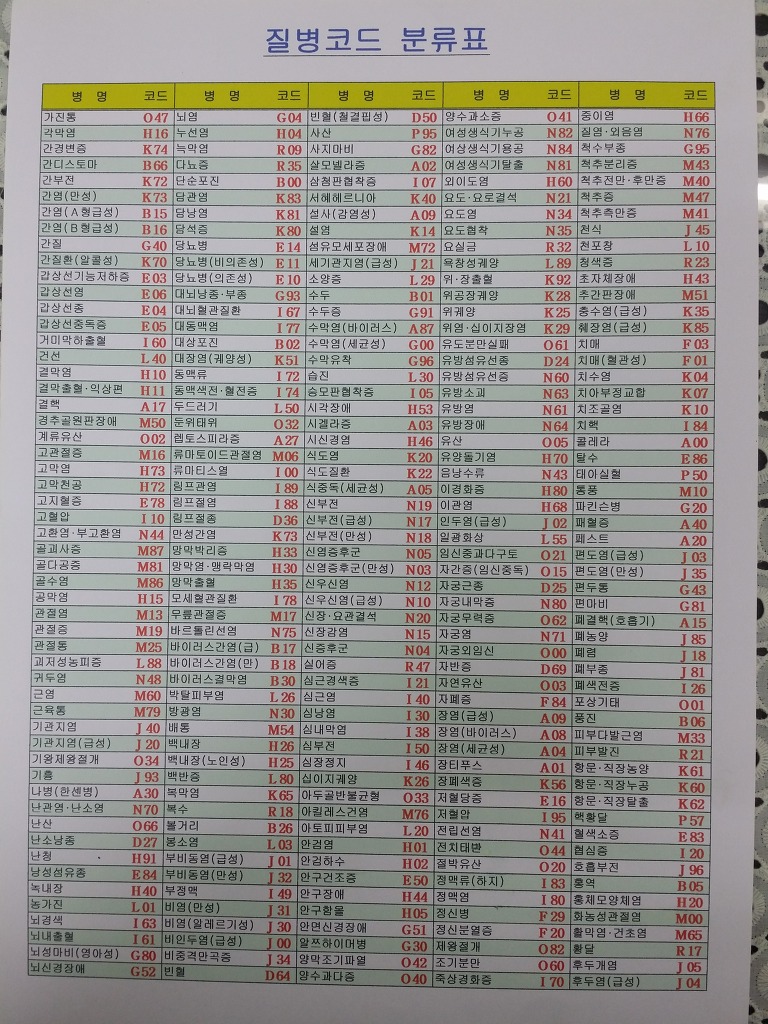 질병코드 분류표
병 명 코드
가진통 O47
각막염 H16
간경변증 K74
간디스토마 B66
간부전 K72
간염(만성) K73
간염(A형급성) B15
간염(B형급성) B16
간질 G40
간질환(알콜성) K70
갑상선기능저하증 E03
갑상선염 E06
갑상선종 E04
갑상선중독증 E05
거미막하출혈 I60
건선 L40
결막염 H10
결막출혈·익상편 H11
결핵 A17
경추골원판장애 M50
계류유산 O02
고관절증 M16
고막염 H73
고막천공 H72
고지혈증 E78
고혈압 I10
고환염·부고환염 N44
골괴사증 M87
골다공증 M81
골수염 M86
공막염 H15
관절염 M13
관절증 M19
관절통 M25
괴저성농피증 L88
귀두염 N48
근염 M60
근육통 M79
기관지염 J40
기관지염(급성) J20
기왕제왕절개 O34
기흉 J93
나병(한센병) A30
난관염·난소염 N70
난산 O66
난소낭종 D27
난청 H91
남성섬유증 E84
녹내장 H40
농가진 L01
뇌경색 I63
뇌내출혈 I61
뇌성마비(영아성) G80
뇌신경장애 G52
병 명 코드
뇌염 G04
누선염 H04
늑막염 R09
다뇨증 R35
단순포진 B00
담관염 K83
담낭염 K81
담석증 K80
당뇨병 E14
당뇨병(비의존성) E11
당뇨병(의존성) E10
대뇌낭종·부종 G93
대뇌혈관질환 I67
대동맥염 I77
대상포진 B02
대장염(궤양성) K51
동맥류 I72
동맥색전·혈전증 I74
두드러기 L50
둔위태위 O32
렙토스피라증 A27
류마토이드관절염 M06
류마티스열 I00
림프관염 I89
림프절염 I88
림프절종 D36
만성간염 K73
망막박리증 H33
망막염·맥락막염 H30
망막출혈 H35
모세혈관질환 I78
무릎관절증 M17
바르톨린선염 N75
바이러스간염(급) B17
바이러스간염(만) B18
바이러스결막염 B30
박탈피부염 L26
방광염 N30
배통 M54
백내장 H26
백내장(노인성) H25
백반증 L80
복막염 K65
복수 R18
볼거리 B26
봉소염 L03
부비동염(급성) J01
부비동염(만성) J32
부정맥 I49
비염(만성) J31
비염(알레르기성) J30
비인두염(급성) J00
비중격만곡증 J34
빈혈 D64
병 명 코드
빈혈(철결핍성) D50
사산 P95
사지마비 G82
살모넬라증 A02
삼첨판협착증 I07
서혜헤르니아 K40
설사(감염성) A09
설염 K14
섬유모세포장애 M72
세기관지염(급성) J21
소양증 L29
수두 B01
수두증 G91
수막염(바이러스) A87
수막염(세균성) G00
수막유착 G96
습진 L30
승모판협착증 I05
시각장애 H53
시겔라증 A03
시신경염 H46
식도염 K20
식도질환 K22
식중독(세균성) A05
신부전 N19
신부전(급성) N17
신부전(만성) N18
신염증후군 N05
신염증후군(만성) N03
신우신염 N12
신우신염(급성) N10
신장·요관결석 N20
신장감염 N15
신증후군 N04
실어증 R47
심근경색증 I21
심근염 I40
심낭염 I30
심내막염 I38
심부전 I50
심장정지 I46
십이지궤양 K26
아두골반불균형 O33
아킬레스건염 M76
아토피피부염 L20
안검염 H01
안검하수 H02
안구건조증 E50
안구장애 H44
안구함몰 H05
안면신경장애 G51
알쯔하이머병 G30
양막조기파열 O42
양수과다증 O40
병 명 코드
양수과소증 O41
여성생식기누공 N82
여성생식기용공 N84
여성생식기탈출 N81
외이도염 H60
요도·요로결석 N21
요도염 N34
요도협착 N35
요실금 R32
욕창성궤양 L89
위·장출혈 K92
위공장궤양 K28
위궤양 K25
위염·십이지장염 K29
유도분만실패 O61
유방섬유선종 D24
유방섬유선증 N60
유방소괴 N63
유방염 N61
유방장애 N64
유산 O05
유양돌기염 H70
음낭수류 N43
이경화증 H80
이관염 H68
인두염(급성) J02
일광화상 L55
임신중과다구토 O21
자간증(임신중독) O15
자궁근종 D25
자궁내막증 N80
자궁무력증 O62
자궁염 N71
자궁외임신 O00
자반증 D69
자연유산 O03
자폐증 F84
장염(급성) A09
장염(바이러스) A08
장염(세균성) A04
장티푸스 A01
장폐색증 K56
저혈당증 E16
저혈압 I95
전립선염 N41
전치태반 O44
절박유산 O20
정맥류(하지) I83
정맥염 I80
정신병 F29
정신분열증 F20
제왕절개 O82
조기분만 O60
죽상경화증 I70
병 명 코드
중이염 H66
질염·외음염 N76
척수부종 G95
척추분리증 M43
척추전만·후만증 M40
척추증 M47
척추측만증 M41
천식 J45
천포창 L10
청색증 R23
초자체장애 H43
추간판장애 M51
충수염(급성) K35
췌장염(급성) K85
치매 F03
치매(혈관성) F01
치수염 K04
치아부정교합 K07
치조골염 K10
치핵 I84
콜레라 A00
탈수 E86
태아실혈 P50
통풍 M10
파킨슨병 G20
패혈증 A40
페스트 A20
편도염(급성) J03
편도염(만성) J35
편두통 G43
편마비 G81
폐결핵(호흡기) A15
폐농양 J85
폐렴 J18
폐부종 J81
폐색전증 I26
포상기태 O01
풍진 B06
피부다발근염 M33
피부발진 R21
항문·직장농양 K61
항문·직장누공 K60
항문·직장탈출 K62
핵황달 P57
혈색소증 E83
협심증 I20
호흡부전 J96
홍역 B05
홍채모양체염 H20
화농성관절염 M00
활막염·건초염 M65
황달 R17
후두개염 J05
후두염(급성) J04